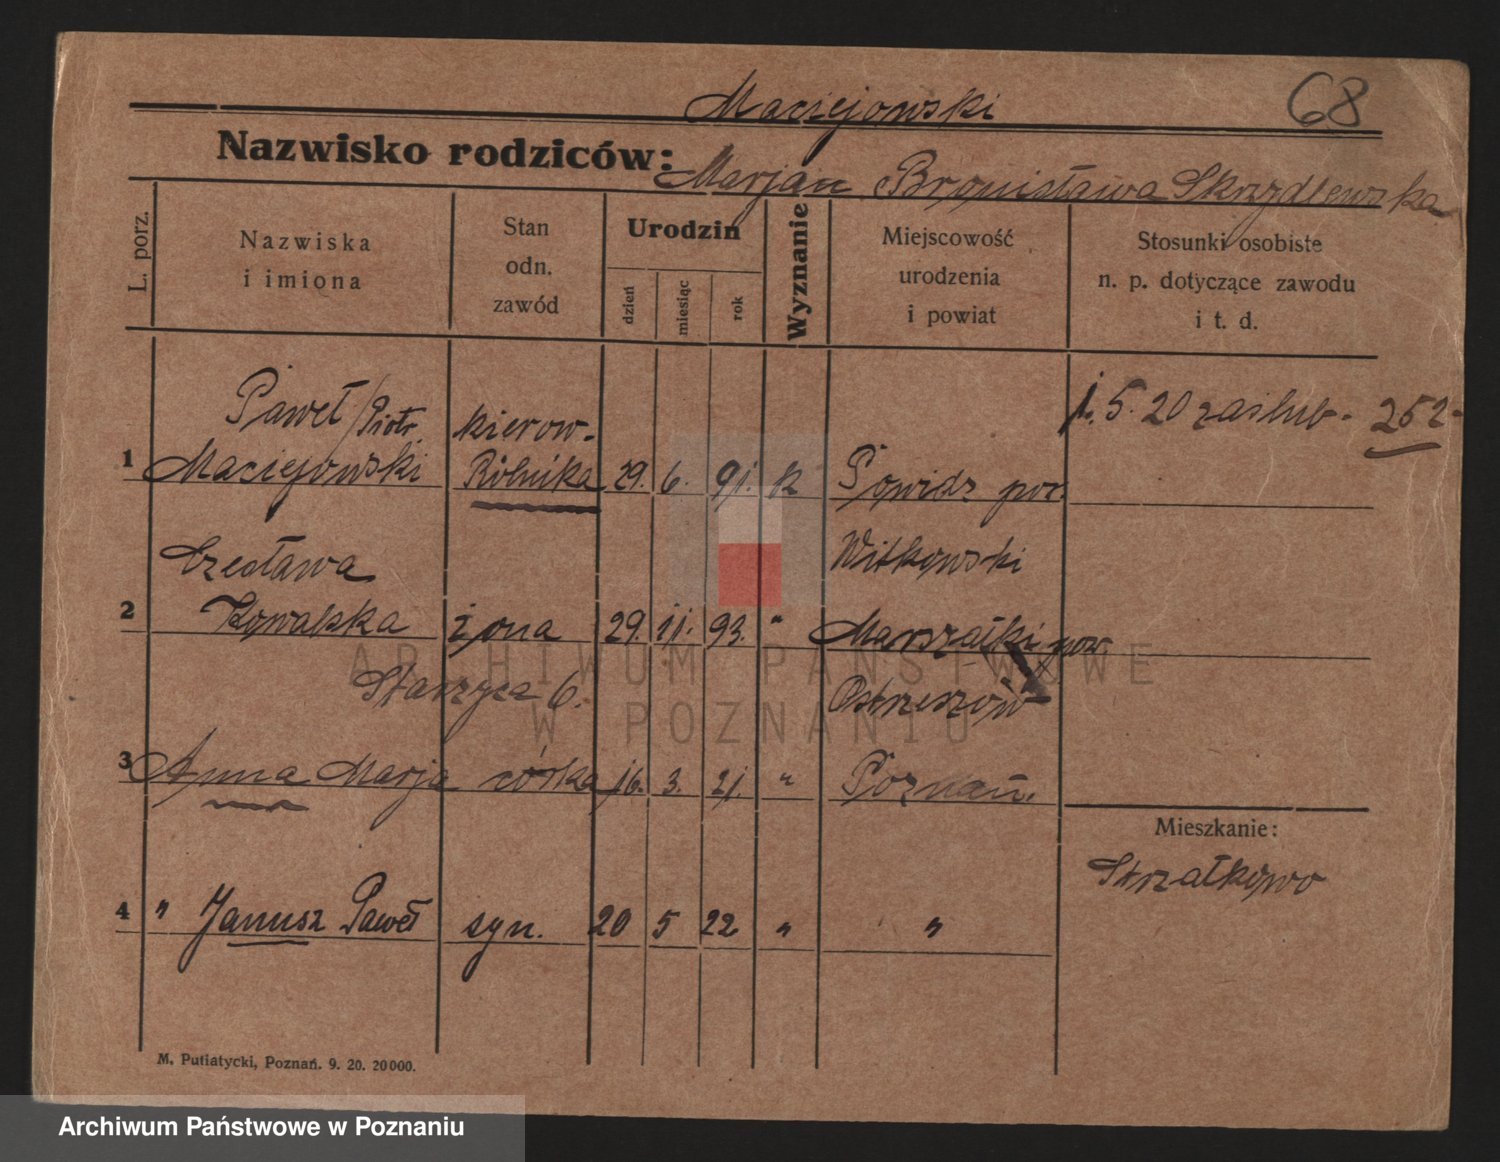 Maciejowski
68
Nazwisko rodziców: Marjan Bronisława Skrzydlewska
L. porz.
Nazwiska
i imiona
Stan
odn.
zawód
Urodzin
dzień
miesiąc
rok
Wyznanie
Miejscowość
urodzenia
i powiat
Stosunki osobiste
n. p. dotyczące zawodu
i t. d.
Paweł/Piotr kierow- 1. 5. 20 zaślub- 252-
1 Maciejowski Rólnika 29. 6. 91. k Powidz pow.
Czesława Witkowski
2 Kowalska żona 29. 11. 93. " Marszałki pow.
Starzyca 6. Ostrzeszów
3 Anna Marja córka 16. 3. 21. " Poznań.
Mieszkanie:
Strzałkowo
4 " Janusz Paweł syn. 20 5 22 " "
M. Putiatycki, Poznań. 9. 20. 20000.
ARCHIWUM PAŃSTWOWE
W POZNANIU
Archiwum Państwowe w Poznaniu